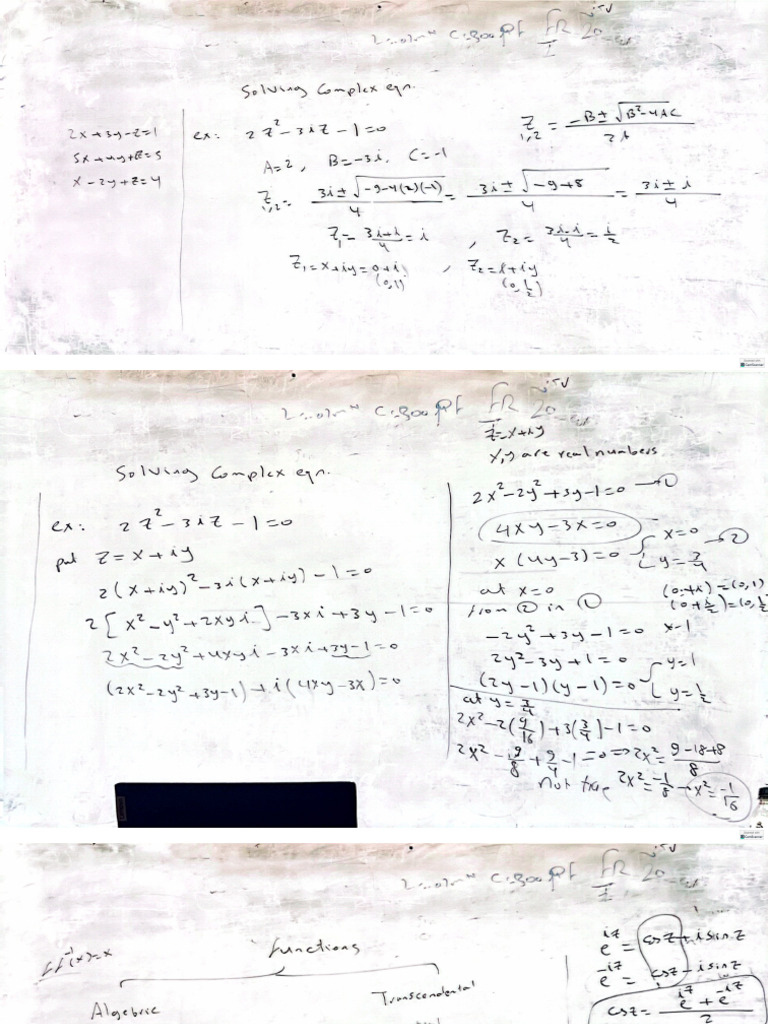 Solving Complex eqn.
2x+3y-z=1
x-2y+z=4
ex: 2z²-3iz-1=0
Z₁,₂ = (-B±√(B²-4AC))/2A
A=2, B=-3i, C=-1
Z₁,₂ = (3i±√(-9-4(2)(-1)))/4 = (3i±√(-9+8))/4 = (3i±i)/4
Z₁ = (3i+i)/4 = i , Z₂ = (3i-i)/4 = i/2
Z₁=x+iy=0+i , Z₂=x+iy
(0,1) (0,1/2)
CamScanner
Solving Complex eqn.
ex: 2z²-3iz-1=0
put z=x+iy
2(x+iy)²-3i(x+iy)-1=0
2[x²-y²+2xyi]-3xi+3y-1=0
2x²-2y²+4xyi-3xi+3y-1=0
(2x²-2y²+3y-1)+i(4xy-3x)=0
z=x+iy
x,y are real numbers
2x²-2y²+3y-1=0 → ①
4xy-3x=0
x(4y-3)=0 x=0 y=3/4 → ②
at x=0 (0+i)=(0,1)
from ② in ① (0+i/2)=(0,1/2)
-2y²+3y-1=0 x-1
2y²-3y+1=0
(2y-1)(y-1)=0 y=1 y=1/2
at y=3/4
2x²-2(9/16)+3(3/4)-1=0
2x²-9/8+9/4-1=0 ⇒ 2x²=(9-18+8)/8
not true 2x²=-1/8 → x²=-1/16
CamScanner
ff⁻¹(x)=x
functions
Algebric
Transcendental
e^{iz} = cosz+isinz
e^{-iz} = cosz-isinz
cosz = (e^{iz}+e^{-iz})/2